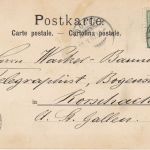 Postkarte.
Carte postale. — Cartolina postale.
Herrn Walther-Bauma
Telegraphist, Bogenst
Rorschach
Ct. St. Gallen